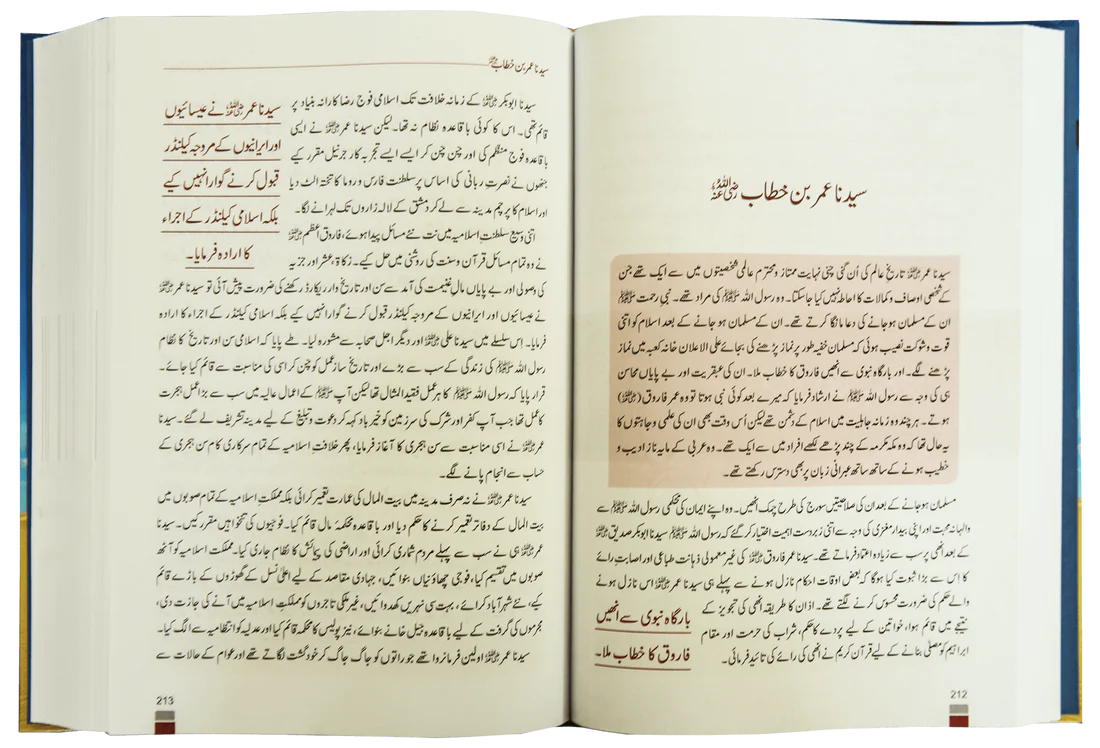 سیدنا عمر بن خطاب رضی اللہ عنہ
سیدنا عمر رضی اللہ عنہ تاریخِ عالم کی اُن گنی چنی نہایت ممتاز و محترم عالمی شخصیتوں میں سے ایک تھے جن
کے شخصی اوصاف و کمالات کا احاطہ نہیں کیا جاسکتا۔ وہ رسول اللہ ﷺ کی مراد تھے۔ نبیِ رحمت ﷺ
ان کے مسلمان ہوجانے کی دعا مانگا کرتے تھے۔ ان کے مسلمان ہو جانے کے بعد اسلام کو اتنی
قوت و شوکت نصیب ہوئی کہ مسلمان خفیہ طور پر نماز پڑھنے کی بجائے علی الاعلان خانہ کعبہ میں نماز
پڑھنے لگے۔ اور بارگاہ نبوی سے انھیں فاروق کا خطاب ملا۔ ان کی عبقریت اور بے پایاں محاسن
ہی کی وجہ سے رسول اللہ ﷺ نے ارشاد فرمایا کہ میرے بعد کوئی نبی ہوتا تو وہ عمر فاروق (رضی اللہ عنہ)
ہوتے۔ ہر چند وہ زمانہ جاہلیت میں اسلام کے دشمن تھے لیکن اُس وقت بھی ان کی علمی و جاہتوں کا
یہ حال تھا کہ وہ مکہ مکرمہ کے چند پڑھے لکھے افراد میں سے ایک تھے۔ وہ عربی کے مایہ ناز ادیب و
خطیب ہونے کے ساتھ ساتھ عبرانی زبان پر بھی دسترس رکھتے تھے۔
مسلمان ہو جانے کے بعد ان کی صلاحیتیں سورج کی طرح چمک اٹھیں۔ وہ اپنے ایمان کی محکمی رسول اللہ ﷺ سے
والہانہ محبت اور اپنی بیدار مغزی کی وجہ سے اتنی زبردست اہمیت اختیار کر گئے کہ رسول اللہ ﷺ سیدنا ابوبکر صدیق رضی اللہ عنہ
کے بعد انھی پر سب سے زیادہ اعتماد فرماتے تھے۔ سیدنا عمر فاروق رضی اللہ عنہ کی غیر معمولی ذہانت طباعی اور اصابتِ رائے
کا اس سے بڑا ثبوت کیا ہوگا کہ بعض اوقات احکام نازل ہونے سے پہلے ہی سیدنا عمر رضی اللہ عنہ اس نازل ہونے
والے حکم کی ضرورت محسوس کرنے لگتے تھے۔ اذان کا طریقہ انھی کی تجویز کے
نتیجے میں قائم ہوا، خواتین کے لیے پردے کا حکم، شراب کی حرمت اور مقام
ابراہیم کو مصلّی بنانے کے لیے قرآن کریم نے انھی کی رائے کی تائید فرمائی۔
بارگاہ نبوی سے انھیں
فاروق کا خطاب ملا۔
212
سیدنا عمر بن خطاب رضی اللہ عنہ
سیدنا ابوبکر رضی اللہ عنہ کے زمانہ خلافت تک اسلامی فوج رضا کارانہ بنیاد پر
قائم تھی۔ اس کا کوئی باقاعدہ نظام نہ تھا۔ لیکن سیدنا عمر رضی اللہ عنہ نے ایسی
باقاعدہ فوج منظم کی اور چن چن کر ایسے ایسے تجربہ کار جرنیل مقرر کیے
جنھوں نے نصرتِ ربانی کی اساس پر سلطنت فارس و روما کا تختہ الٹ دیا
اور اسلام کا پرچم مدینہ سے لے کر دمشق کے لالہ زاروں تک لہرانے لگا۔
اتنی وسیع سلطنتِ اسلامیہ میں نت نئے مسائل پیدا ہوئے، فاروق اعظم رضی اللہ عنہ
نے وہ تمام مسائل قرآن و سنت کی روشنی میں حل کیے۔ زکاۃ، عشر اور جزیہ
سیدنا عمر رضی اللہ عنہ نے عیسائیوں
اور ایرانیوں کے مروجہ کیلنڈر
قبول کرنے گوارا نہیں کیے
بلکہ اسلامی کیلنڈر کے اجراء
کا ارادہ فرمایا۔
کی وصولی اور بے پایاں مالِ غنیمت کی آمد سے سن اور تاریخ وار ریکارڈ رکھنے کی ضرورت پیش آئی تو سیدنا عمر رضی اللہ عنہ
نے عیسائیوں اور ایرانیوں کے مروجہ کیلنڈر قبول کرنے گوارا نہیں کیے بلکہ اسلامی کیلنڈر کے اجرا کا ارادہ
فرمایا۔ اس سلسلے میں سیدنا علی رضی اللہ عنہ اور دیگر اجل صحابہ سے مشورہ لیا۔ طے پایا کہ اسلامی سن اور تاریخ کا نظام
رسول اللہ ﷺ کی زندگی کے سب سے بڑے اور تاریخ ساز عمل کو چن کر اسی کی مناسبت سے قائم کیا جائے۔
قرار پایا کہ رسول اللہ ﷺ کا ہر عمل فقید المثال تھا لیکن آپ ﷺ کے اعمال عالیہ میں سب سے بڑا عمل ہجرت
کا عمل تھا جب آپ کفر اور شرک کی سرزمین کو خیر باد کہہ کر دعوت و تبلیغ کے لیے مدینہ تشریف لے گئے۔ سیدنا
عمر رضی اللہ عنہ نے اسی مناسبت سے سن ہجری کا آغاز فرمایا، پھر خلافت اسلامیہ کے تمام سرکاری کام سن ہجری کے
حساب سے انجام پانے لگے۔
سیدنا عمر رضی اللہ عنہ نے نہ صرف مدینہ میں بیت المال کی عمارت تعمیر کرائی بلکہ مملکتِ اسلامیہ کے تمام صوبوں میں
بیت المال کے دفاتر تعمیر کرنے کا حکم دیا اور باقاعدہ محکمۂ مال قائم کیا۔ فوجیوں کی تنخواہیں مقرر کیں۔ سیدنا
عمر رضی اللہ عنہ ہی نے سب سے پہلے مردم شماری کرائی اور اراضی کی پیمائش کا نظام جاری کیا۔ مملکت اسلامیہ کو آٹھ
صوبوں میں تقسیم کیا، فوجی چھاؤنیاں بنوائیں، جہادی مقاصد کے لیے اعلیٰ نسل کے گھوڑوں کے باڑے قائم
کیے، نئے شہر آباد کرائے، بہت سی نہریں کھدوائیں، غیر ملکی تاجروں کو مملکتِ اسلامیہ میں آنے کی اجازت دی،
مجرموں کی گرفت کے لیے باقاعدہ جیل خانے بنوائے، نیز پولیس کا محکمہ قائم کیا اور عدلیہ کو انتظامیہ سے الگ کیا۔
سیدنا عمر رضی اللہ عنہ اولین فرمانروا تھے جو راتوں کو جاگ جاگ کر خود گشت لگاتے تھے اور عوام کے حالات سے
213